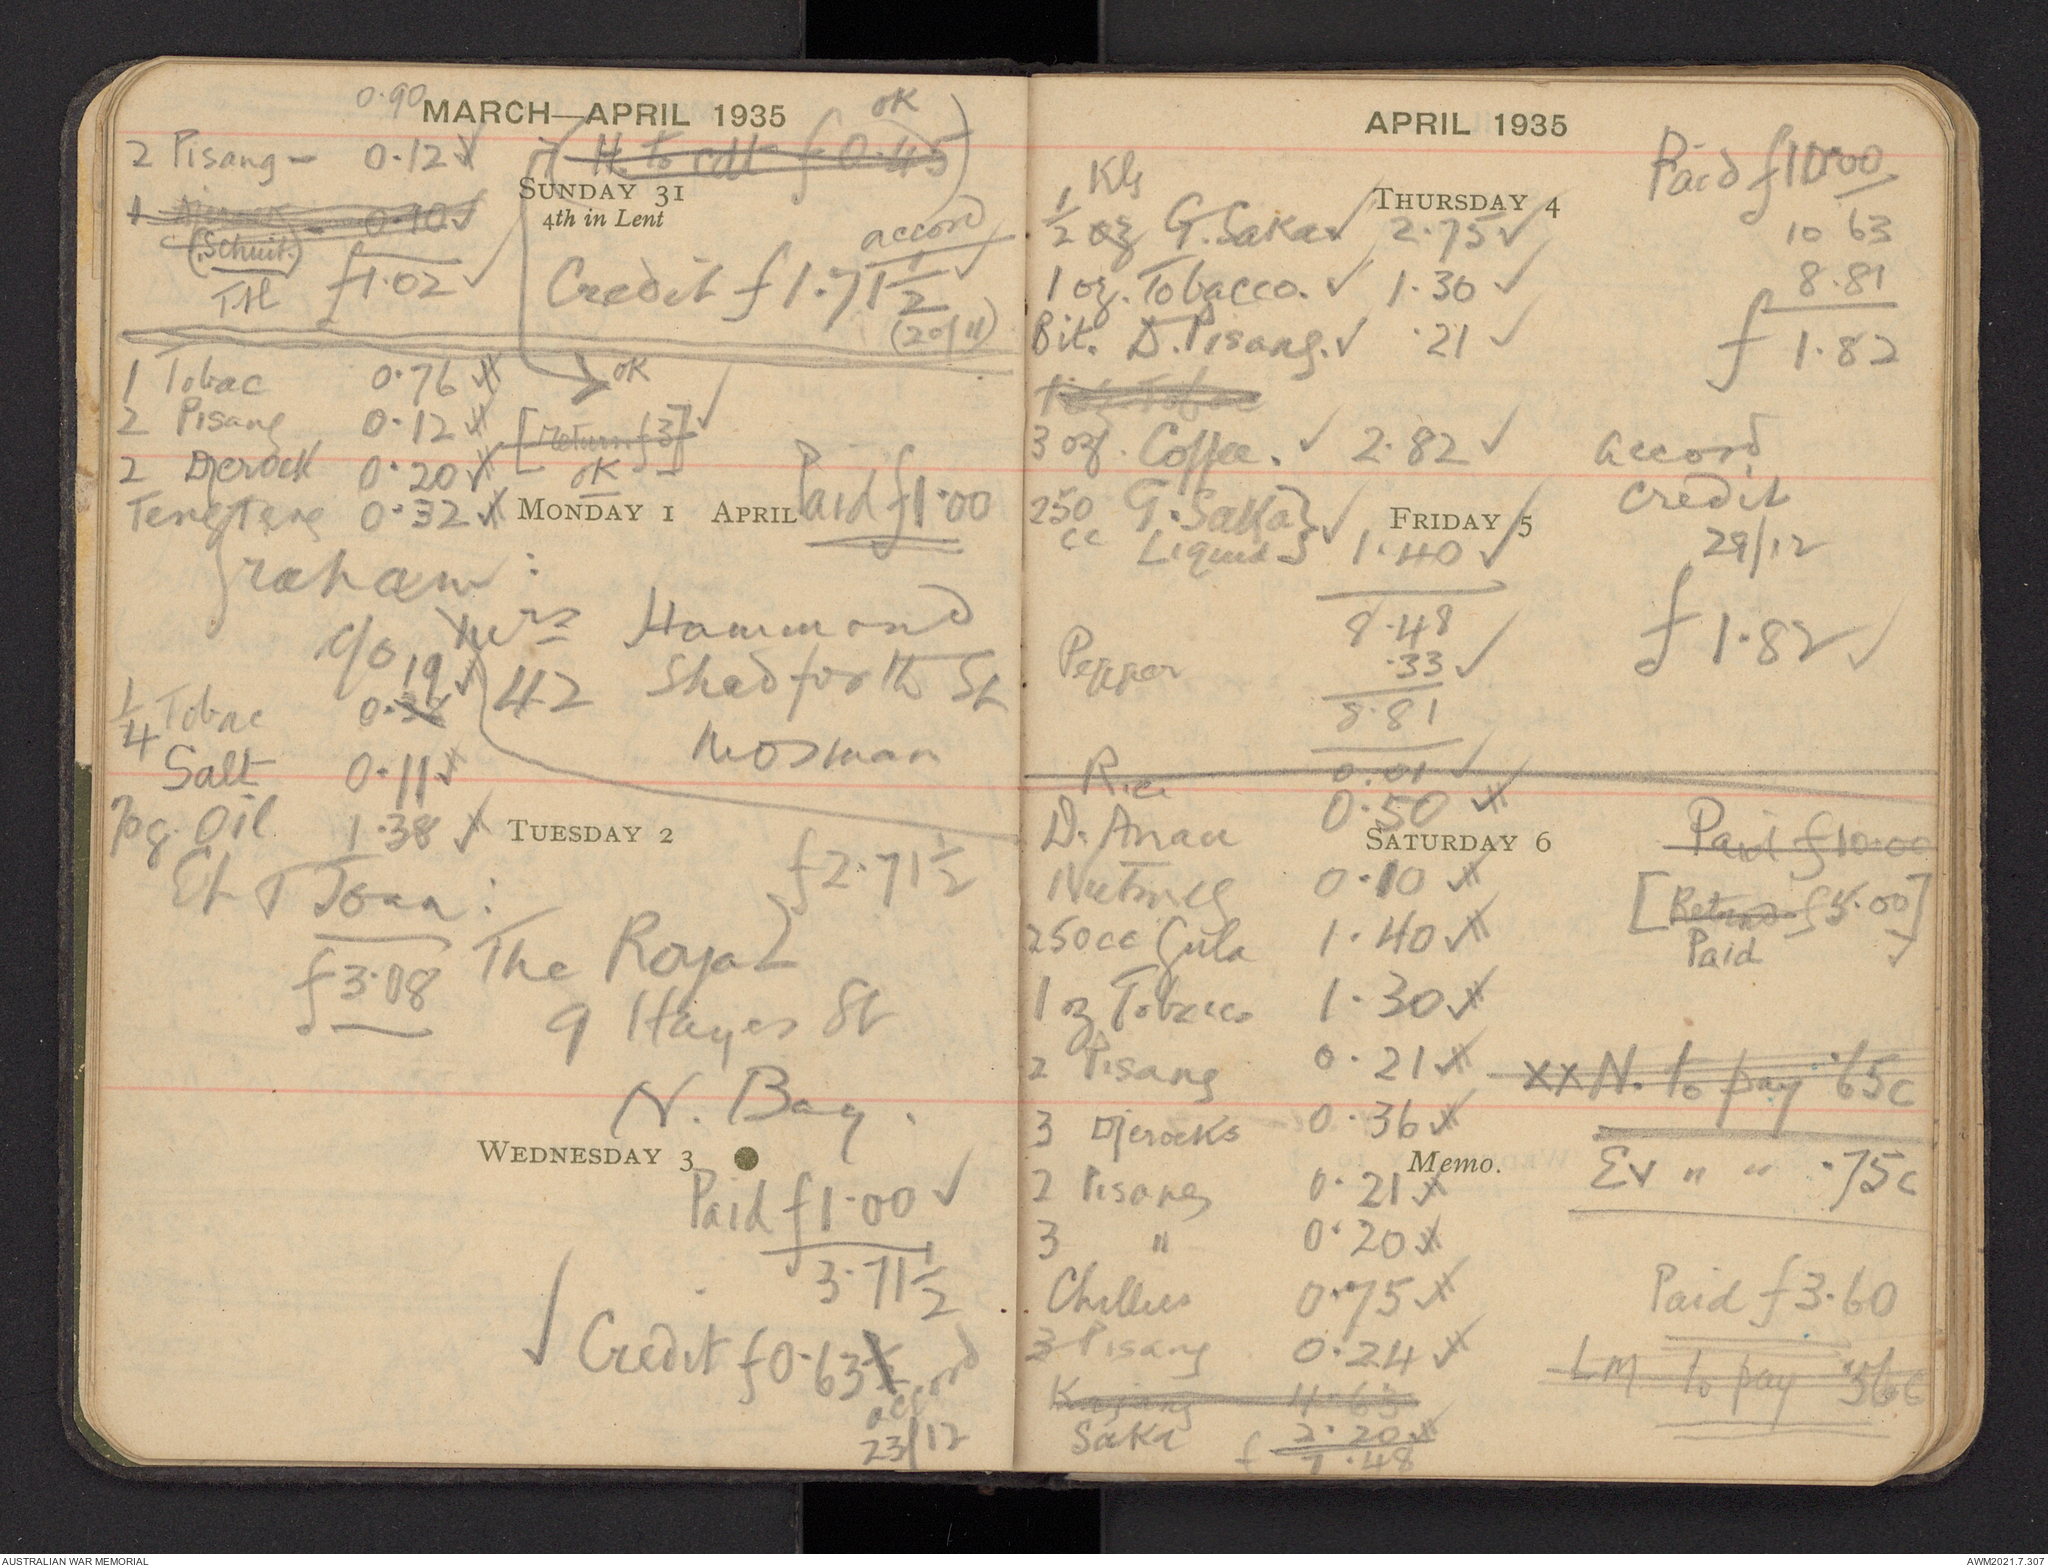 0.90
MARCH—APRIL 1935
ok
2 Pisang — 0.12
H. to cdt f 0.45
SUNDAY 31
4th in Lent
1 Djerock 0.70
(Schuit.)
TH f1.02
accord
Credit f 1.71 1/2
(20/11)
1 Tobac 0.76
ok
2 Pisang 0.12
[return f3]
ok
2 Djerock 0.20
Paid f1.00
Teng Teng 0.32
MONDAY 1 APRIL
Graham:
c/o Mrs Hammond
19
42 Shadforth St
1/4 Tobac 0.38
Mosman
Salt 0.11
Pog. Oil 1.38
TUESDAY 2
f2.71 1/2
Et & Joan:
f3.08
The Royal
9 Hayes St
N. Bay.
WEDNESDAY 3
Paid f1.00
3.71 1/2
Credit f0.63 1/2
accord
23/12
APRIL 1935
Paid f10.00
Kg
THURSDAY 4
1/2 oz G. Saka 2.75
10 63
8.81
f 1.82
1 oz. Tobacco. 1.30
Bit. D. Pisang. .21
1 oz. Tobac
3 oz. Coffee. 2.82
accord
credit
29/12
f 1.82
250 cc G. Saka Liquid 1.40
FRIDAY 5
8.48
Pepper .33
8.81
Rice 0.01
D. Anau 0.50
SATURDAY 6
Paid f10.00
Nutmeg 0.10
[Return f5.00]
Paid
250cc Gula 1.40
1 oz Tobacco 1.30
2 Pisang 0.21
xx N. to pay .65c
3 Djerocks 0.36
Memo.
Ev " " .75c
2 Pisang 0.21
3 " 0.20
Chillies 0.75
Paid f3.60
3 Pisang 0.24
LM to pay .56c
Kajang 4.63
Saka 2.20
f 7.48
AUSTRALIAN WAR MEMORIAL
AWM2021.7.307